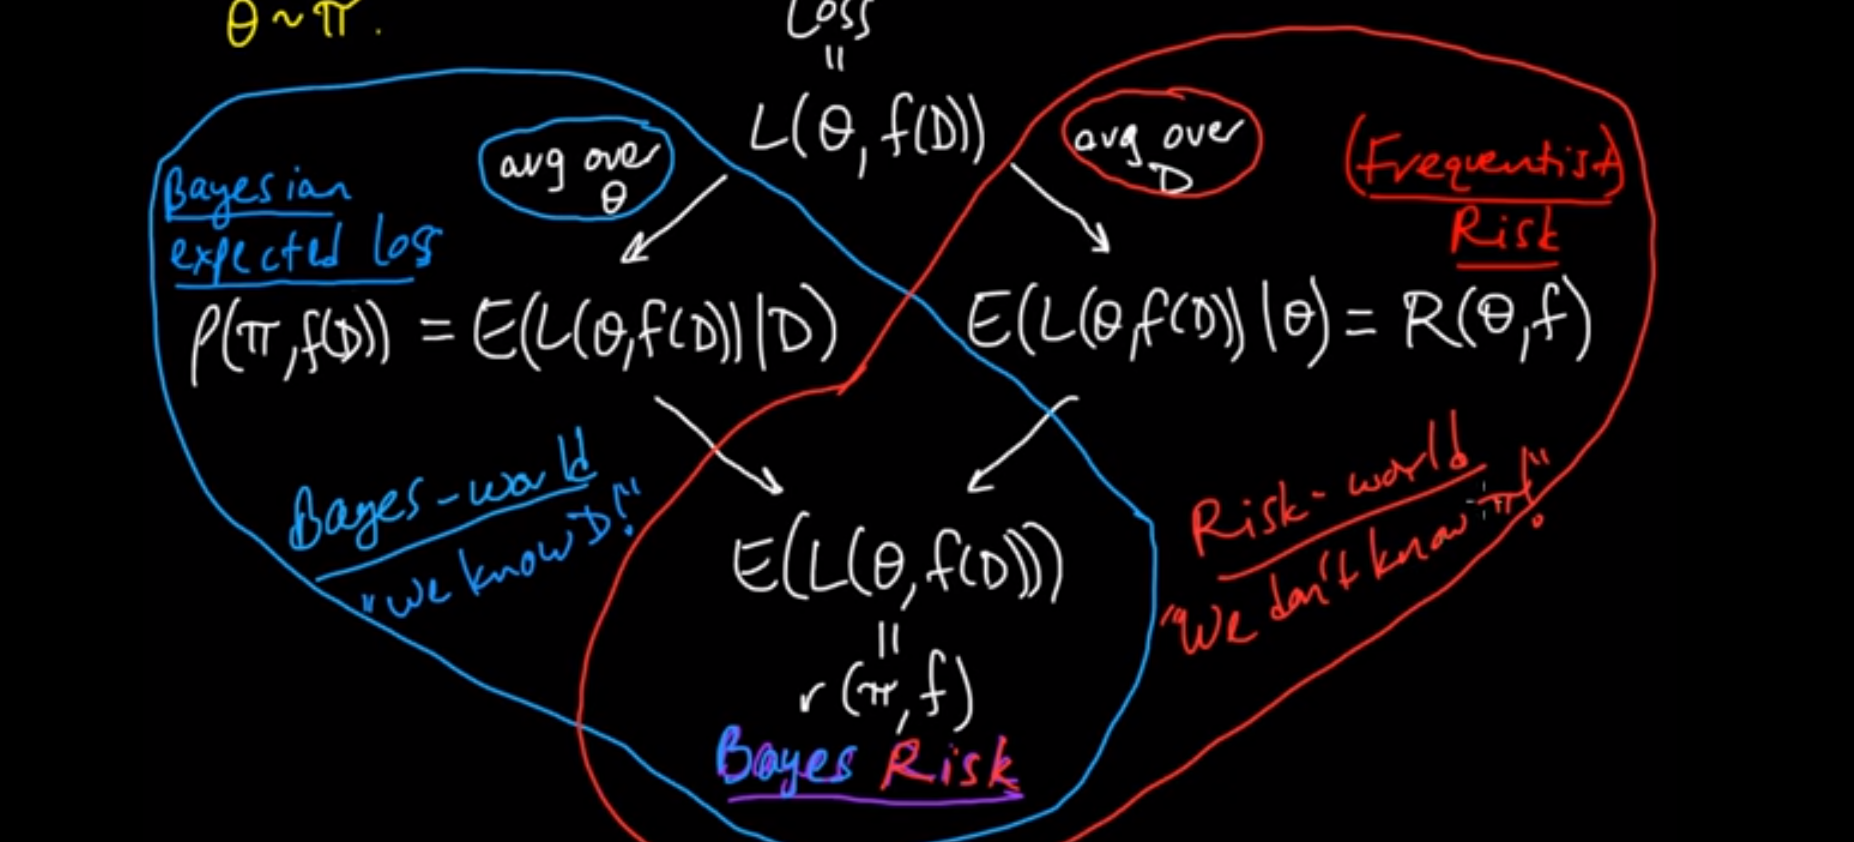 θ ~ π.
Loss
=
L(θ, f(D))
avg over
θ
avg over
D
Bayesian
expected loss
(Frequentist)
Risk
ρ(π, f(D)) = E(L(θ, f(D)) | D)
E(L(θ, f(D)) | θ) = R(θ, f)
Bayes-world
"we know D!"
Risk-world
"We don't know π!"
E(L(θ, f(D)))
=
r(π, f)
Bayes Risk